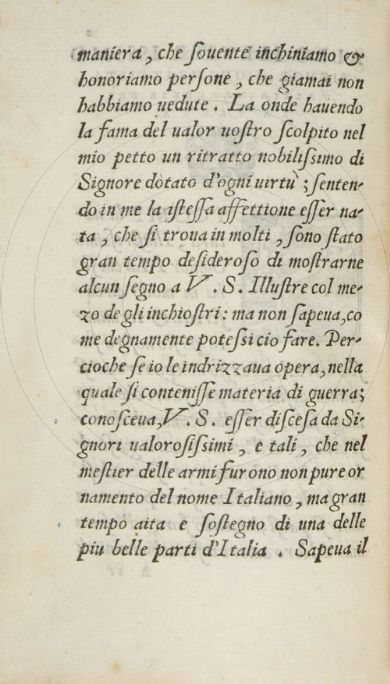 maniera, che ſouente inchiniamo &
honoriamo perſone, che giamai non
habbiamo uedute. La onde hauendo
la fama del ualor uoſtro ſcolpito nel
mio petto un ritratto nobiliſsimo di
Signore dotato d'ogni uirtù; ſenten-
do in me la iſteſſa affettione eſſer na-
ta, che ſi troua in molti, ſono ſtato
gran tempo deſideroſo di moſtrarne
alcun ſegno a V. S. Illuſtre col me-
zo de gli inchioſtri: ma non ſapeua, co
me degnamente poteſsi cio fare. Per-
cioche ſe io le indrizzaua opera, nella
quale ſi conteniſſe materia di guerra;
conoſceua, V. S. eſſer diſceſa da Si-
gnori ualoroſiſsimi, e tali, che nel
meſtier delle armi furono non pure or
namento del nome Italiano, ma gran
tempo aita e ſoſtegno di una delle
piu belle parti d'Italia. Sapeua il